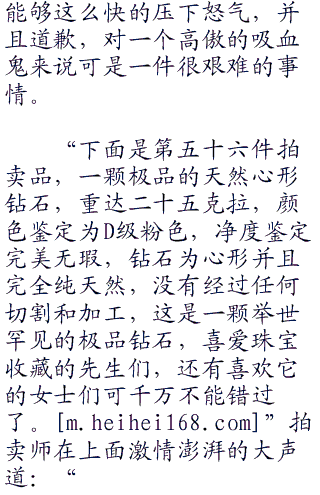 能够这么快的压下怒气，并
且道歉，对一个高傲的吸血
鬼来说可是一件很艰难的事
情。
“下面是第五十六件拍
卖品，一颗极品的天然心形
钻石，重达二十五克拉，颜
色鉴定为D级粉色，净度鉴定
完美无瑕，钻石为心形并且
完全纯天然，没有经过任何
切割和加工，这是一颗举世
罕见的极品钻石，喜爱珠宝
收藏的先生们，还有喜欢它
的女士们可千万不能错过
了。[m.heihei168.com]”拍
卖师在上面激情澎湃的大声
道：“